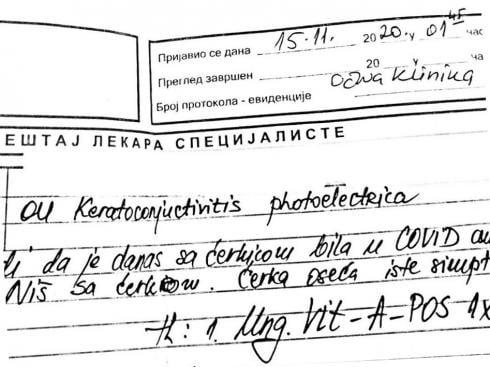 Пријавио се дана 15.11. 2020. у 01 45 час
Преглед завршен 20 у ча
Број протокола - евиденције Očna klinika
ЕШТАЈ ЛЕКАРА СПЕЦИЈАЛИСТЕ
OU Keratoconjuctivitis photoelectrica
da je danas sa ćerkicom bila u COVID am
Niš sa ćerkom. Ćerka oseća iste simpt
Th: 1. Ung. Vit-A-POS 1x